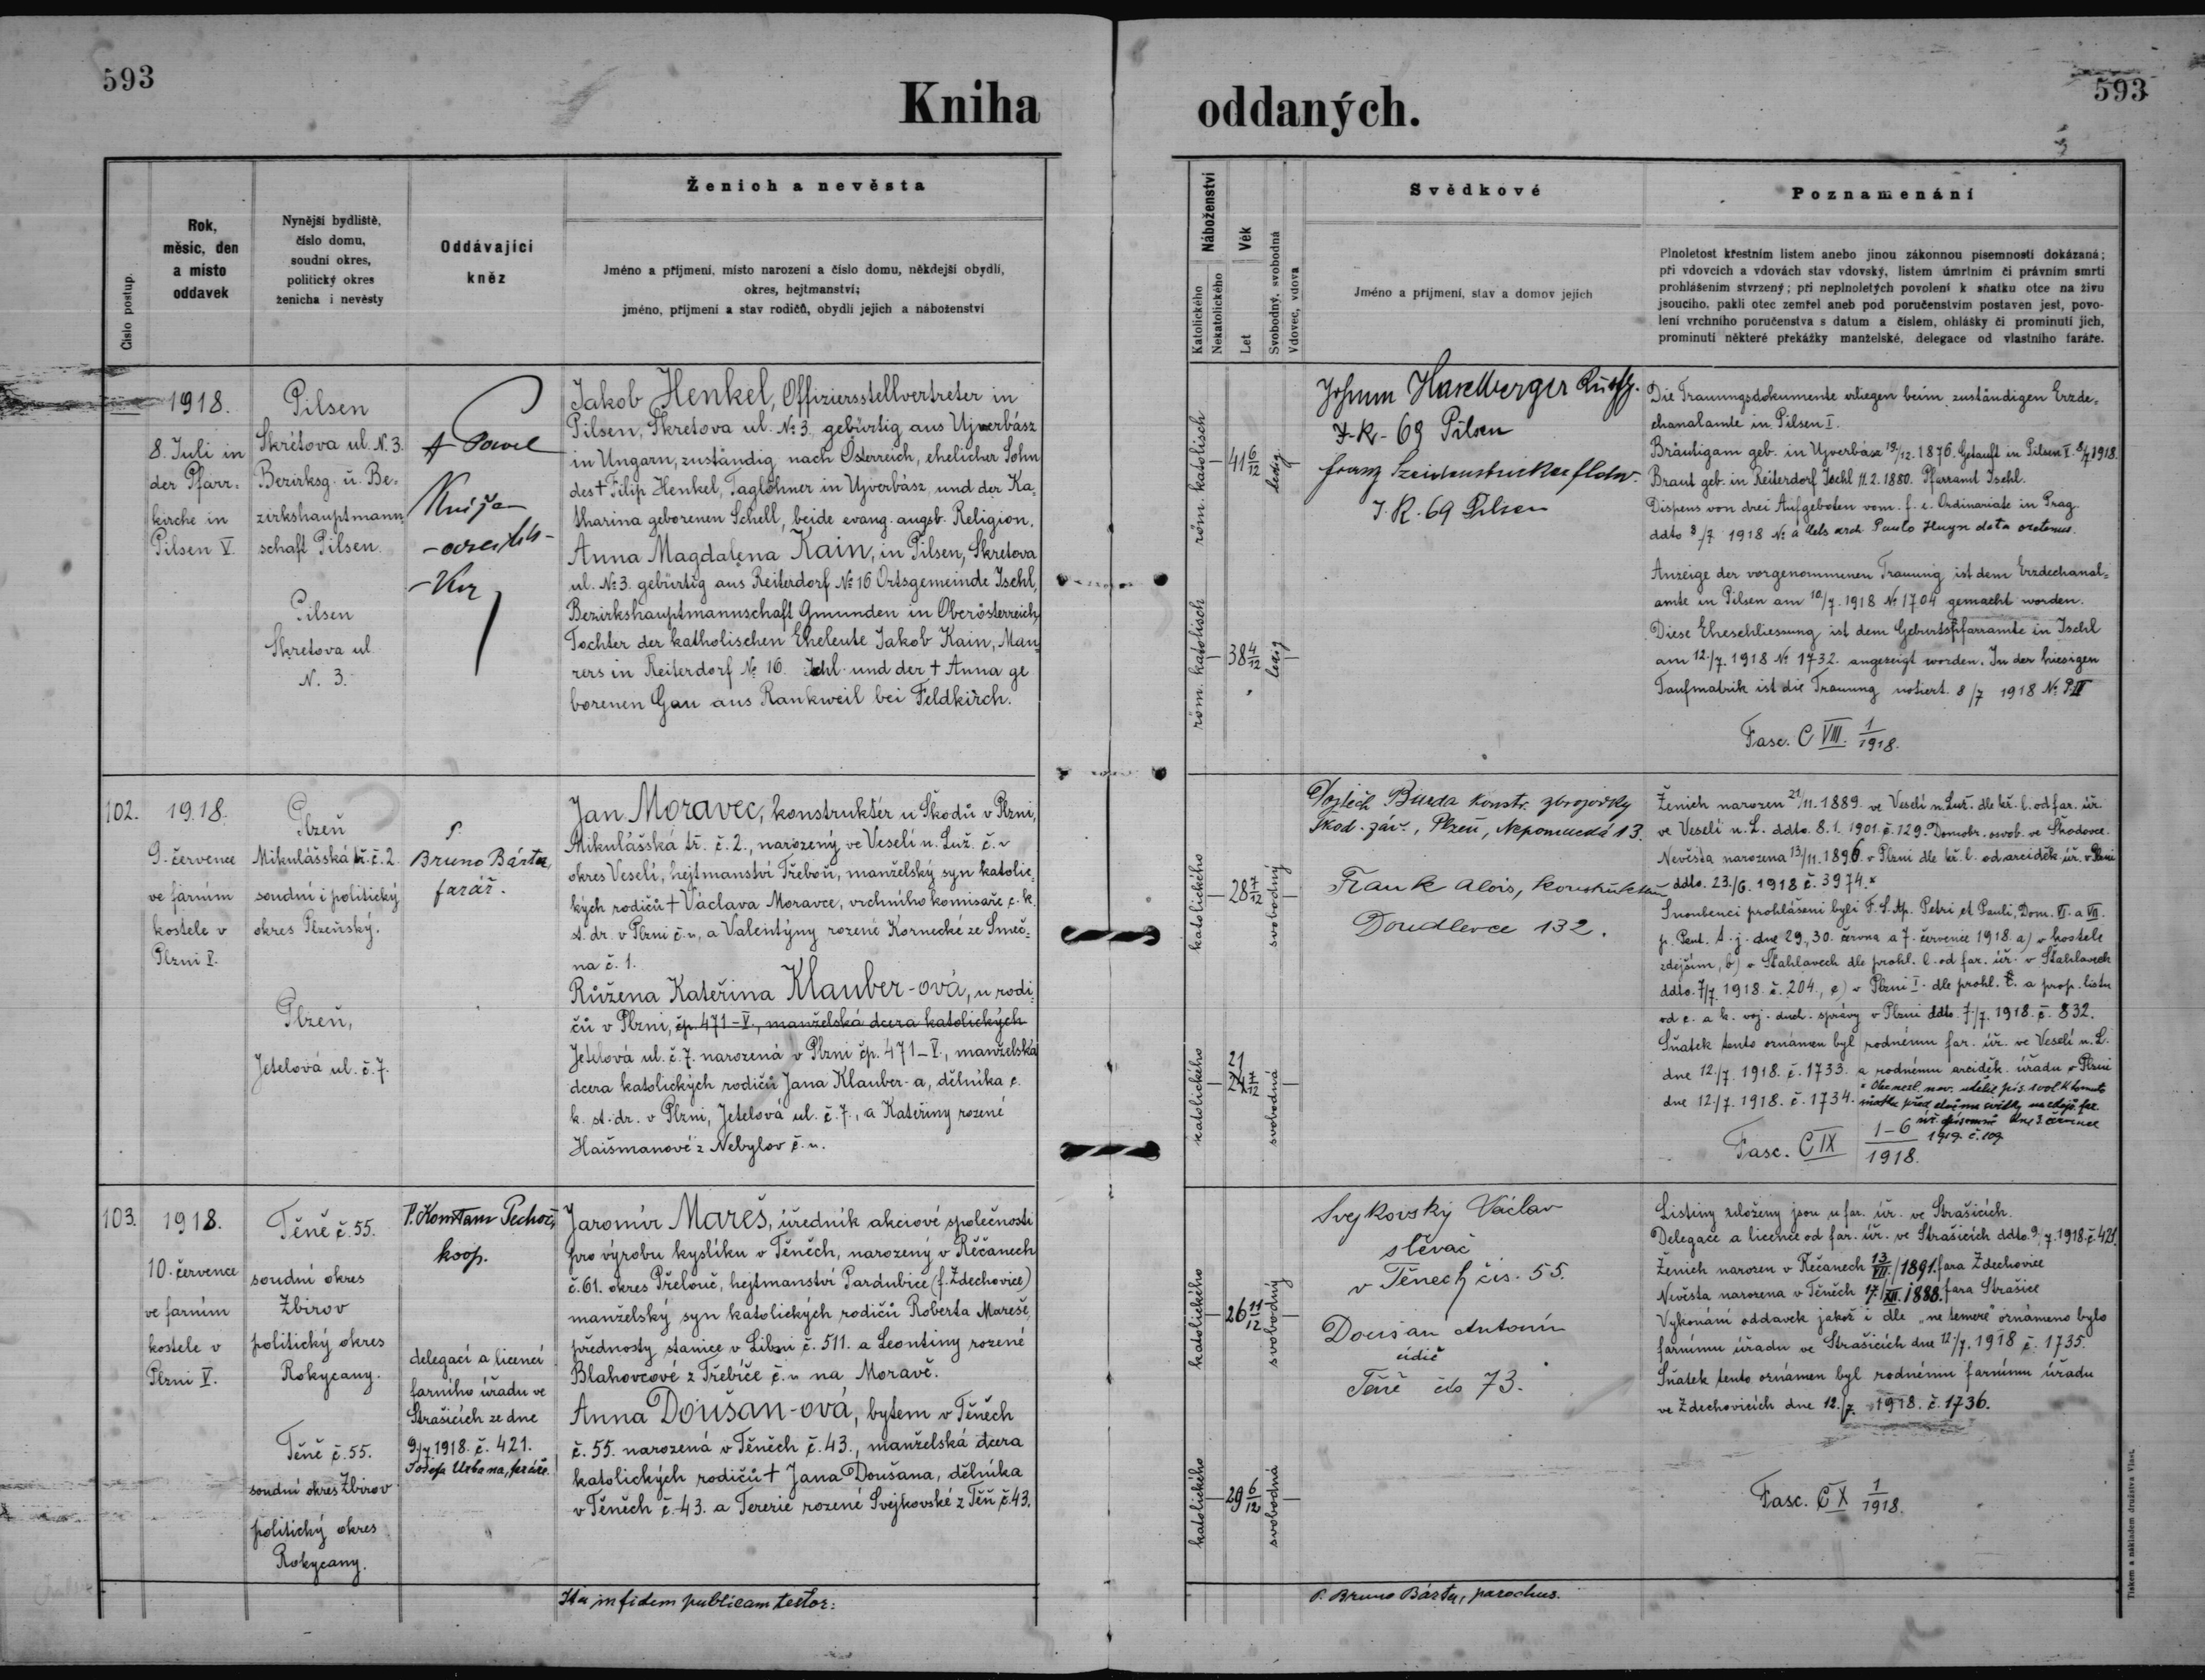 593
593
Kniha oddaných.
Číslo postup.
Rok,
měsíc, den
a místo
oddavek
Nynější bydliště,
číslo domu,
soudní okres,
politický okres
ženicha i nevěsty
Oddávající
kněz
Ženich a nevěsta
Jméno a příjmení, místo narození a číslo domu, někdejší obydlí,
okres, hejtmanství;
jméno, příjmení a stav rodičů, obydlí jejich a náboženství
Náboženství
Katolického
Nekatolického
Věk
Let
Svobodný, svobodná
Vdovec, vdova
Svědkové
Jméno a příjmení, stav a domov jejich
Poznamenání
Plnoletost křestním listem anebo jinou zákonnou písemností dokázaná;
při vdovcích a vdovách stav vdovský, listem úmrtním či právním smrti
prohlášením stvrzený; při neplnoletých povolení k sňatku otce na živu
jsoucího, pakli otec zemřel aneb pod poručenstvím postaven jest, povo-
lení vrchního poručenstva s datum a číslem, ohlášky či prominutí jich,
prominutí některé překážky manželské, delegace od vlastního faráře.
1918.
8. Juli in
der Pfarr-
kirche in
Pilsen V.
Pilsen
Skrétova ul. N. 3.
Bezirksg. u. Be-
zirkshauptmann-
schaft Pilsen.
Pilsen
Skretova ul.
N. 3.
Jakob Henkel, Offiziersstellvertreter in
Pilsen, Skretova ul. No 3. gebürtig aus Ujverbász
in Ungarn, zuständig nach Österreich, ehelicher Sohn
des † Filip Henkel, Taglöhner in Ujverbász, und der Ka-
tharina geborenen Schell, beide evang. augsb. Religion.
Anna Magdalena Kain, in Pilsen, Skretova
ul. No 3. gebürtig aus Reiterdorf No 16 Ortsgemeinde Ischl,
Bezirkshauptmannschaft Gmunden in Oberösterreich,
Tochter der katholischen Eheleute Jakob Kain, Mau-
rers in Reiterdorf No 16. Ischl und der † Anna ge
borenen Gau aus Rankweil bei Feldkirch.
röm. katolisch
41 6/12
ledig
röm. katolisch
38 4/12
ledig
Johann Haselberger
I-R- 69 Pilsen
I. R. 69 Pilsen
Die Trauungsdokumente erliegen beim zuständigen Erzde-
chanalamte in Pilsen I.
Bräutigam geb. in Ujverbász 19/12. 1876. Getauft in Pilsen V. 8/7 1918.
Braut geb. in Reiterdorf Ischl 11. 2. 1880. Pfarramt Ischl.
Dispens von drei Aufgeboten vom f. e. Ordinariate in Prag
ddto 8/7 1918 No a Paulo Huyn
Anzeige der vorgenommenen Trauung ist dem Erzdechanal-
amte in Pilsen am 10/7. 1918 No 1704 gemacht worden.
Diese Eheschliessung ist dem Geburtspfarramte in Ischl
am 12./7. 1918 No 1732. angezeigt worden. In der hiesigen
Taufmatrik ist die Trauung notiert. 8/7 1918 No
Fasc. C VIII. 1/1918.
102.
1918.
9. července
ve farním
kostele v
Plzni V.
Plzeň
Mikulášská tř. č. 2.
soudní i politický
okres Plzeňský.
Plzeň,
Jetelová ul. č. 7.
P.
Bruno Bárta,
farář.
Jan Moravec, konstruktér u Škodů v Plzni,
Mikulášská tř. č. 2., narozený ve Veselí n. Luž. č. n
okres Veselí, hejtmanství Třeboň, manželský syn katolic-
kých rodičů † Václava Moravce, vrchního komisaře c. k.
st. dr. v Plzni č. n., a Valentýny rozené Kornecké ze Smeč-
na č. 1.
Růžena Kateřina Klauber-ová, u rodi-
čů v Plzni, čp. 471-V., manželská dcera katolických
Jetelová ul. č. 7. narozená v Plzni čp. 471-V., manželská
dcera katolických rodičů Jana Klauber-a, dělníka c.
k. st. dr. v Plzni, Jetelová ul. č. 7., a Kateřiny rozené
Haišmanové z Nebylov č. n.
katolického
28 7/12
svobodný
katolického
21
24 7/12
svobodná
Vojtěch Burda konstr. zbrojovky
Škod. záv., Plzeň, Nepomucká 13.
Frank Alois, konstruktér
Doudlevce 132.
Ženich narozen 21/11. 1889. ve Veselí n. Luž. dle kř. l. od far. úř.
ve Veselí n. L. ddto. 8. 1. 1901. č. 129. Domobr. osvob. ve Škodovce.
Nevěsta narozena 13/11. 1896. v Plzni dle kř. l. od arciděk. úř. v Plzni
ddto. 23./6. 1918 č. 3974. x
Snoubenci prohlášeni byli F. S. Ap. Petri et Pauli, Dom. VI. a VII.
p. Pent. t. j. dne 29., 30. června a 7. července 1918 a) v kostele
zdejším, b) v Šťahlavech dle prohl. l. od far. úř. v Šťahlavech
ddto. 7/7. 1918. č. 204., c) v Plzni I. dle prohl. l. a prop. listu
od c. a k. voj. duch. správy v Plzni ddto. 7./7. 1918. č. 832.
Sňatek tento oznámen byl rodnému far. úř. ve Veselí n. L.
dne 12./7. 1918. č. 1733. a rodnému arciděk. úřadu v Plzni
dne 12./7. 1918. č. 1734.
Fasc. C IX 1-6/1918.
103.
1918.
10. července
ve farním
kostele v
Plzni V.
Těně č. 55.
soudní okres
Zbirov
politický okres
Rokycany.
Těně č. 55.
soudní okres Zbirov
politický okres
Rokycany.
koop.
delegací a licencí
farního úřadu ve
Strašicích ze dne
9./7 1918. č. 421.
Josefa Urbana, faráře.
Jaromír Mareš, úředník akciové společnosti
pro výrobu kyslíku v Těněch, narozený v Řečanech
č. 61. okres Přelouč, hejtmanství Pardubice (f. Zdechovice)
manželský syn katolických rodičů Roberta Mareše,
přednosty stanice v Libni č. 511. a Leontiny rozené
Blahovcové z Třebíče č. n na Moravě.
Anna Doušan-ová, bytem v Těněch
č. 55. narozená v Těněch č. 43., manželská dcera
katolických rodičů † Jana Doušana, dělníka
v Těněch č. 43. a Terezie rozené Svejkovské z Těň č. 43.
katolického
26 11/12
svobodný
katolického
29 6/12
svobodná
Svejkovský Václav
slévač
v Těnech čís. 55.
Doušan Antonín
Těně čís 73.
Listiny uloženy jsou u far. úř. ve Strašicích.
Delegace a licence od far. úř. ve Strašicích ddto. 9/7. 1918. č. 421.
Ženich narozen v Řečanech 13/VII. 1891. fara Zdechovice
Nevěsta narozena v Těněch 17/XII. 1888. fara Strašice
Vykonání oddavek jakož i dle „ne temere“ oznámeno bylo
farnímu úřadu ve Strašicích dne 12/7. 1918 č. 1735.
Sňatek tento oznámen byl rodnému farnímu úřadu
ve Zdechovicích dne 12./7. 1918. č. 1736.
Fasc. C X 1/1918.
Ita in fidem publicam testor:
P. Bruno Bárta, parochus.
Tiskem a nákladem družstva Vlast.